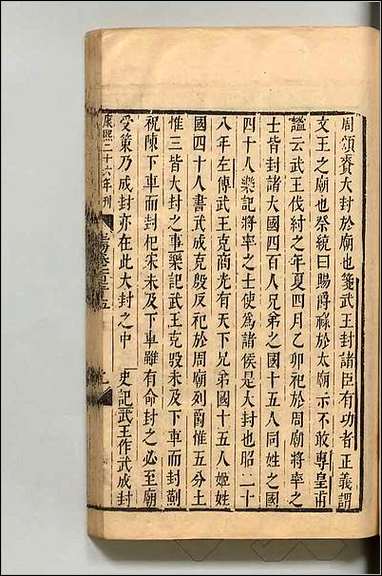 周頌賚大封於廟也箋武王封諸臣有功者正義謂
文王之廟也祭統曰賜爵祿於太廟示不敢專皇甫
謐云武王伐紂之年夏四月乙卯祀於周廟將率之
士皆封諸侯國四百人兄弟之國十五人同姓之國
四十人樂記將率之士使為諸侯是大封也昭二十
八年左傳武王克商光有天下兄弟國十五人姬姓
國四十人書武成克殷反祀於周廟列爵惟五分土
惟三皆大封之事樂記武王克殷未及下車而封薊
祝陳下車而封杞宋未及下車雖有命封之必至廟
受策乃成封亦在此大封之中　史記武王作武成封
康熙二十六年刊